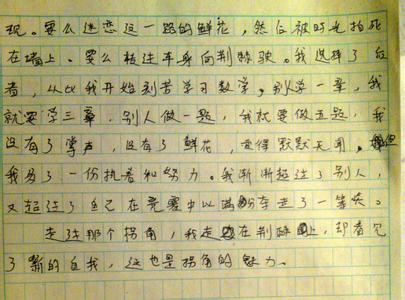 现。要么迷恋这一路的鲜花，然后被时光拍死
在墙上。要么板过车身向荆棘驶。我选择了后
者，从此我开始刻苦学习数学。别人学一章，我
就要学三章，别人做一题，我就要做五题，我
没有了掌声，没有了鲜花，变得默默无闻，但
我多了一份执着和努力。我渐渐超过了别人，
又超过了自己在竞赛中以满分夺走了一等奖。
走过那个拐角，我走在荆棘上，却看见
了新的自我，这也是拐角的魅力。